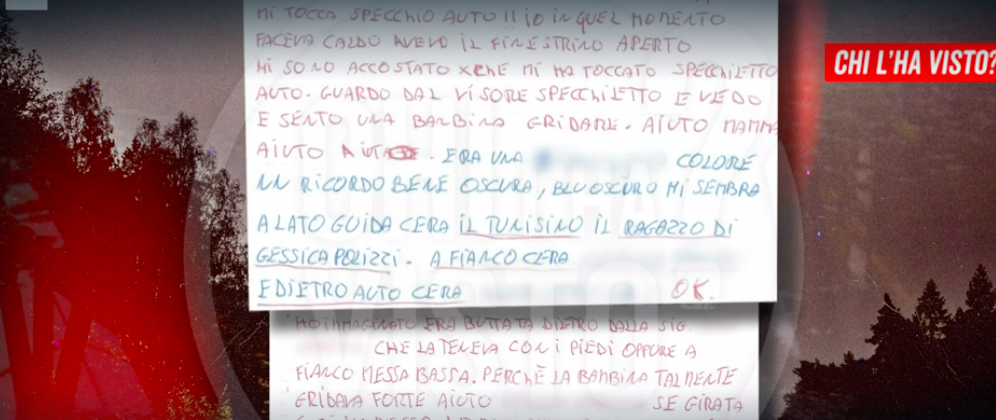 MI TOCCA SPECCHIO AUTO !! IO IN QUEL MOMENTO
FACEVA CALDO AVEVO IL FINESTRINO APERTO
MI SONO ACCOSTATO XCHE MI HA TOCCATO SPECCHIETTO
AUTO. GUARDO DAL VISORE SPECCHIETTO E VEDO
E SENTO UNA BAMBINA GRIDARE. AIUTO MAMMA
AIUTO AIUTO. ERA UNA COLORE
NN RICORDO BENE OSCURA, BLU OSCURO MI SEMBRA
A LATO GUIDA CERA IL TUNISINO IL RAGAZZO DI
GESSICA POLIZZI. A FIANCO CERA
E DIETRO AUTO CERA OK.
HO IMMAGINATO ERA BUTTATA DIETRO DALLA SIG.
CHE LA TENEVA CON I PIEDI OPPURE A
FIANCO MESSA BASSA. PERCHÈ LA BAMBINA TALMENTE
GRIDAVA FORTE AIUTO SE GIRATA
CHI L'HA VISTO?